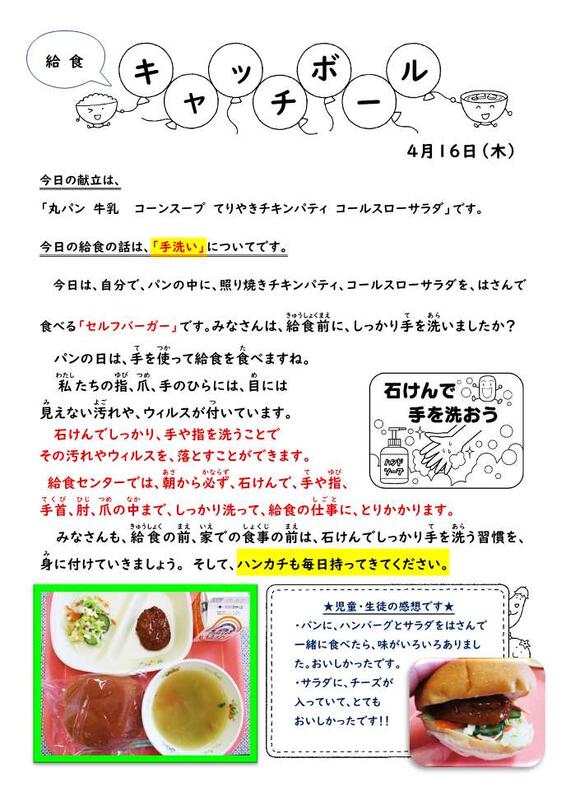 給 食
キャッチボール
4月16日(木)
今日の献立は、
「丸パン 牛乳 コーンスープ てりやきチキンパティ コールスローサラダ」です。
今日の給食の話は、「手洗い」についてです。
今日は、自分で、パンの中に、照り焼きチキンパティ、コールスローサラダを、はさんで
食べる「セルフバーガー」です。みなさんは、給食前に、しっかり手を洗いましたか?
パンの日は、手を使って給食を食べますね。
私たちの指、爪、手のひらには、目には
見えない汚れや、ウィルスが付いています。
石けんでしっかり、手や指を洗うことで
その汚れやウィルスを、落とすことができます。
給食センターでは、朝から必ず、石けんで、手や指、
手首、肘、爪の中まで、しっかり洗って、給食の仕事に、とりかかります。
みなさんも、給食の前、家での食事の前は、石けんでしっかり手を洗う習慣を、
身に付けていきましょう。 そして、ハンカチも毎日持ってきてください。
石けんで
手を洗おう
ハンド
ソープ
★児童・生徒の感想です★
・パンに、ハンバーグとサラダをはさんで
一緒に食べたら、味がいろいろありまし
た。おいしかったです。
・サラダに、チーズが
入っていて、とても
おいしかったです!!